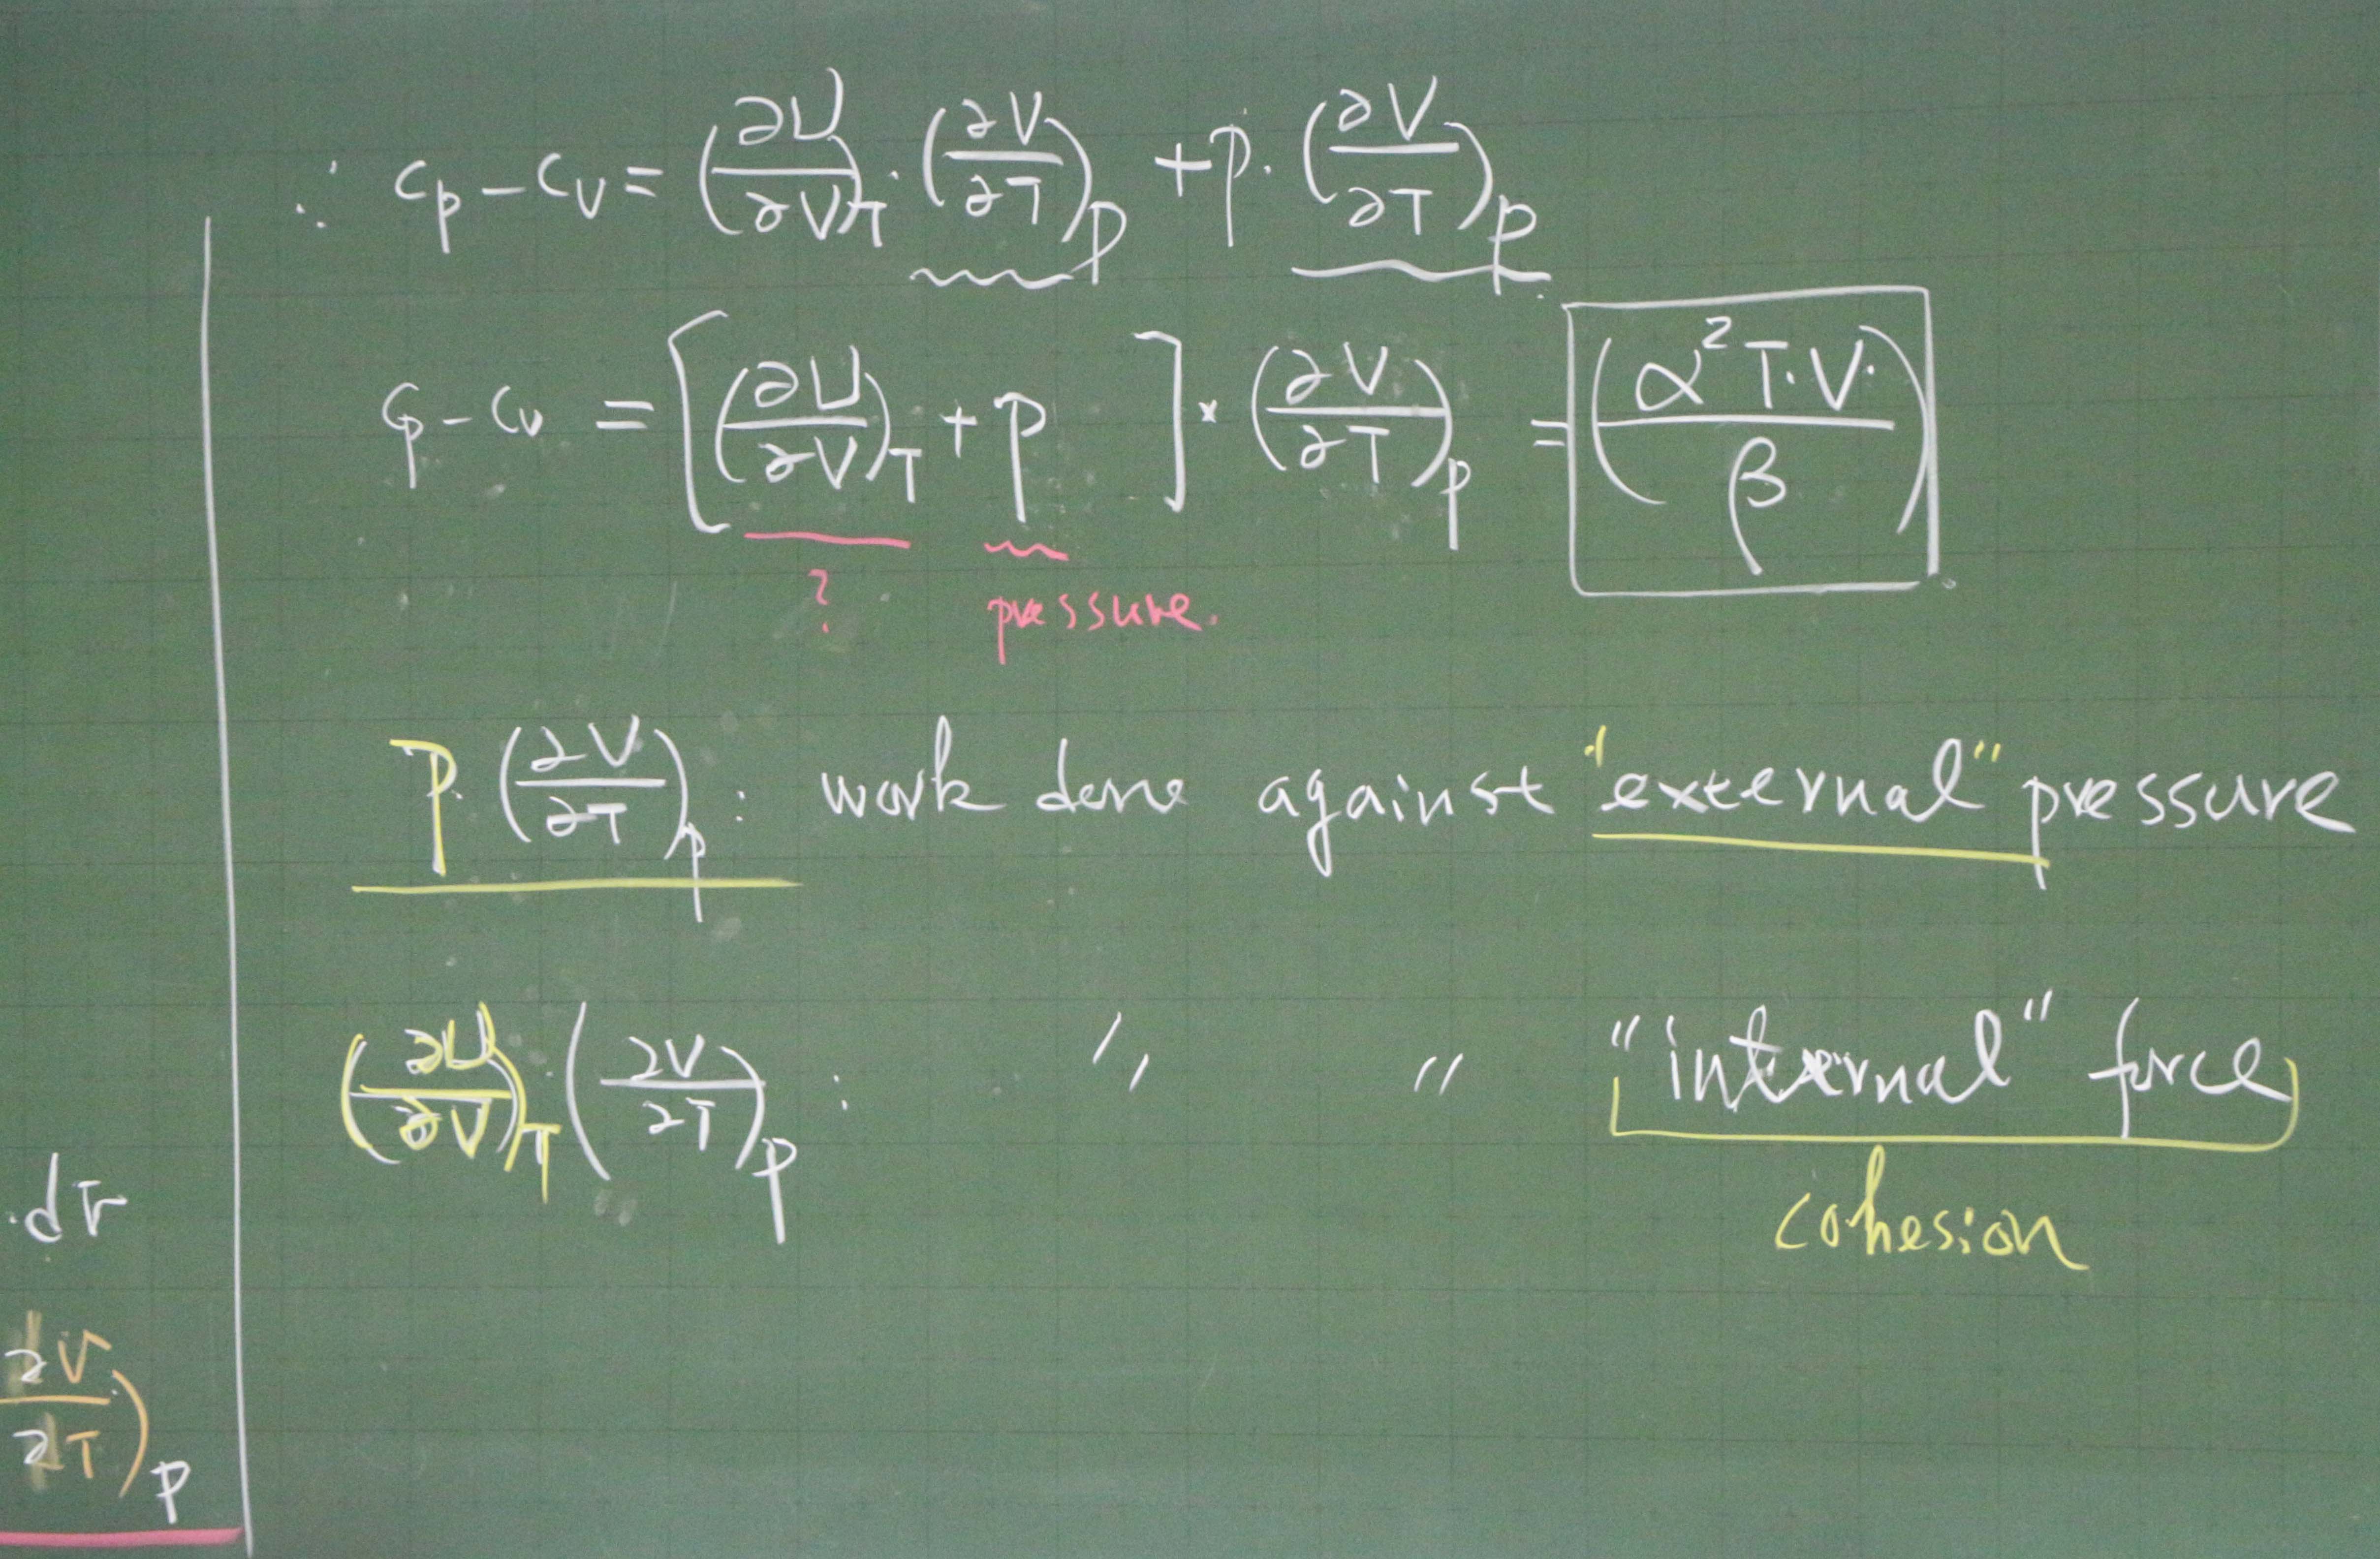 ∴ Cp - Cv = (∂U/∂V)T · (∂V/∂T)P + P · (∂V/∂T)P
Cp - Cv = [(∂U/∂V)T + P] × (∂V/∂T)P = (α² T·V·/β)
? pressure.
P · (∂V/∂T)P : work done against "external" pressure
(∂U/∂V)T (∂V/∂T)P : " " "internal" force
cohesion
·dT
∂V/∂T)P